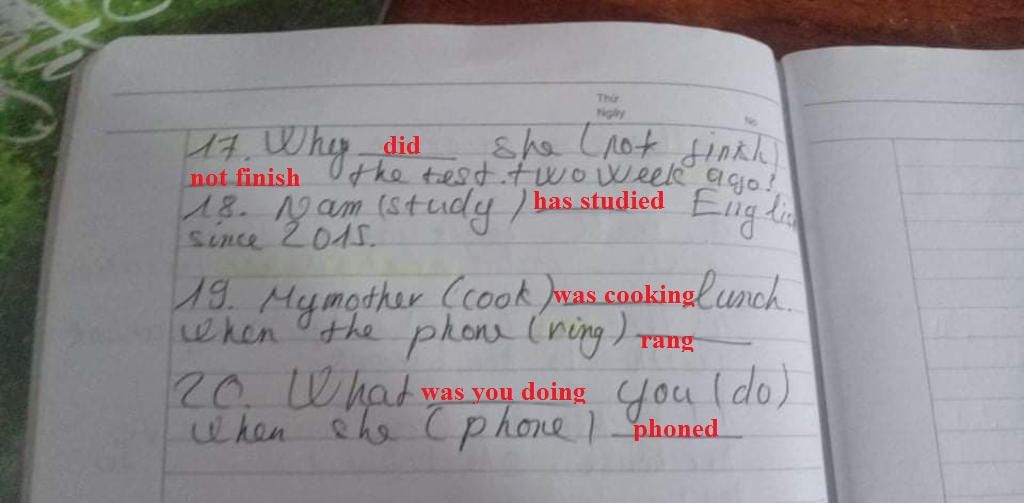 Thứ
Ngày
No
17. Why did she (not finish)
not finish the test. two week ago?
18. Nam (study) has studied English
since 2015.
19. My mother (cook) was cooking lunch.
when the phone (ring) rang
20. What was you doing you (do)
when she (phone) phoned